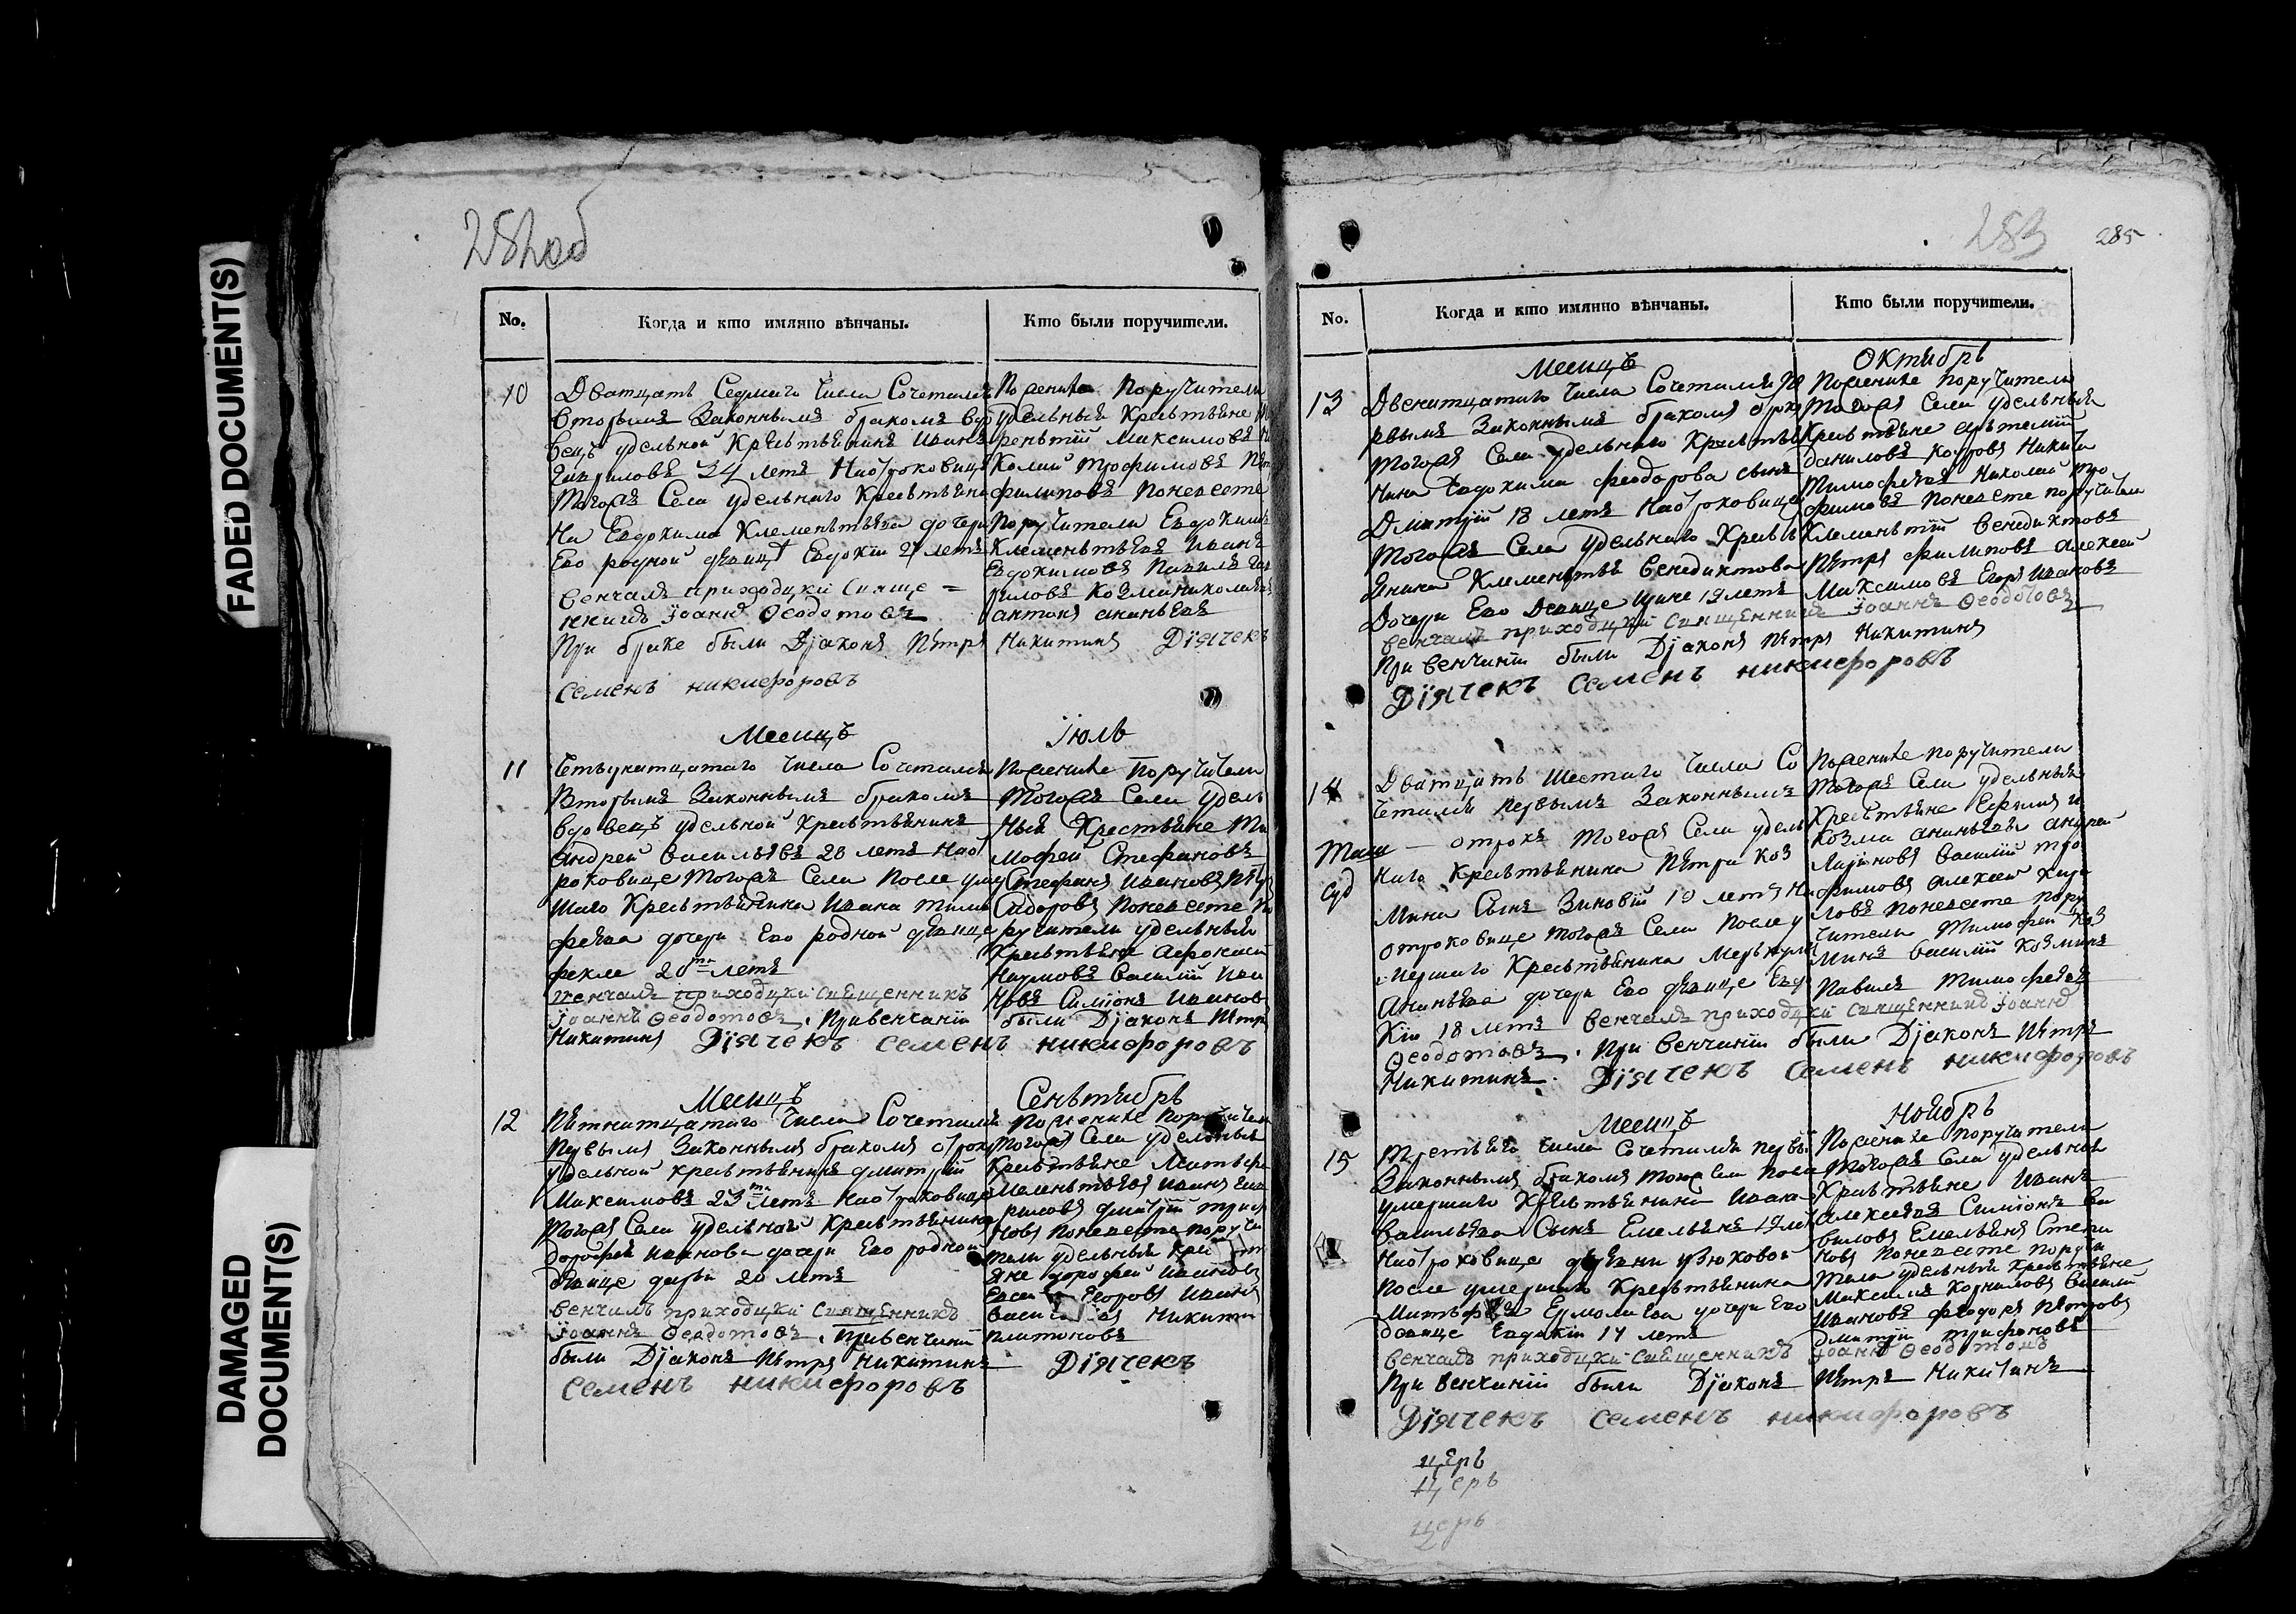 FADED DOCUMENT(S)
DAMAGED
DOCUMENT(S)
282об
No.
Когда и кто имянно вѣнчаны.
Кто были поручители.
10
Дватцать Седмаго числа Сочетался
Вторымъ Законнымъ бракомъ вдо
вецъ удельной Крестьянинъ Иванъ
Гавриловъ 34 летъ Наотроковице
Тогожъ Села удельнаго Крестьяни
На Евдокима Клементьева дочери
Ево родной девице Евдокiи 27 летъ
венчалъ приходцкiй Свяще =
нникъ Iоаннъ Ѳеодотовъ
При браке были Дiаконъ Пѣтръ Никитинъ Дiячекъ
Семенъ никифоровъ
По женихе Поручители
удельныя Крестьяне
рентiй Максимовъ
Колай Трофимовъ
филиповъ Поневесте
Поручители Евдокимъ
Клементьевъ Иванъ
Евдокимовъ Павилъ
риловъ Козма николаевъ
антонъ ананьевъ
Месицъ Iюль
11
Четырнатцатаго числа Сочетался
Вторымъ Законнымъ бракомъ
вдовецъ удельной Крестьянинъ
Андрей васильевъ 28 летъ Наот
роковице Тогожъ Села После умер
шаго Крестьянина Ивана тимо
феева дочери Ево родной девице
фекле 20ти летъ
венчалъ приходцкiй священникъ
Iоаннъ Ѳеодотовъ. При венчанiи были Дiаконъ Пѣтръ
Никитинъ Дiячекъ Семенъ никифоровъ
Поженихе Поручители
Тогожъ Села удель
Ныя Крестьяне Ти
мофей Стефановъ
Стефанъ Ивановъ
Сидоровъ Поневесте По
ручители удельныя
Крестьяне Афонасей
Наумовъ Василiй Ива
Новъ Симiонъ Иванов
Месицъ Сентябрь
12
Пѣтнатцатаго числа Сочетался
Первымъ Законнымъ бракомъ отрокъ
удельной крестьянинъ дмитрiй
Максимовъ 23ти летъ Наотроковице
Тогожъ Села удельнаго Крестьянина
дорофея Иванова дочери Ево родной
девице дарьи 20 летъ
венчалъ приходцкiй Священникъ
Iоаннъ Ѳеодотовъ. Привенчанiи
были Дiаконъ Пѣтръ Никитинъ Дiячекъ
Семенъ никифоровъ
Поженихе Поручители
Тогожъ Села удельныя
Крестьяне
Мелентьевъ Иванъ
риловъ дмитрiй
Новъ Поневесте поручи
тели удельныя
яне дорофей Ивановъ
Егоровъ Иванъ
Никити
платоновъ
283
285
No.
Когда и кто имянно вѣнчаны.
Кто были поручители.
Месицъ Октябрь
13
Двенатцатаго числа Сочетался Пе
рвымъ Законнымъ бракомъ отрокъ
Тогожъ Села удельнаго Крестья
Нина Евдокима феодорова сынъ
Дмитрiй 18 летъ Наотроковице
Тогожъ Села удельнаго Кресть
янина Клементья Венедиктова
Дочери Ево Девице 19 летъ
венчалъ приходцкiй священникъ Iоаннъ Ѳеодотовъ
При венчанiи были Дiаконъ Пѣтръ Никитинъ
Дiячекъ Семенъ никифоровъ
Поженихе Поручители
Тогожъ Села удельныя
Крестьяне артемiй
даниловъ Никита
Тимофеевъ Николай тро
фимовъ Поневесте поручители
Клементiй Венедиктовъ
Пѣтръ филиповъ алексей
Максимовъ Егоръ Ивановъ
14
Дватцать Шестаго числа Со
четался Первымъ Законнымъ
отрокъ Тогожъ Села удель
Наго Крестьянина Пѣтра Коз
Мина Сынъ Зиновiй 19 летъ На
отроковице тогожъ Села После у
мершаго Крестьянина
Ананьева дочери Ево девице Евдо
Кiи 18 летъ венчалъ приходцкiй священникъ Iоаннъ
Ѳеодотовъ. При венчанiи были Дiаконъ Пѣтръ
Никитинъ. Дiячекъ Семенъ никифоровъ
Поженихе поручители
Тогожъ Села удельныя
Крестьяне Ефимъ и
Козма ананьевы андрей
Василiй тро
фимовъ алексей Кири
ловъ поневесте пору
чители Тимофей Коз
минъ Василiй Козминъ
Павилъ Тимофеевъ
Месицъ Ноябрь
15
Третьяго числа Сочетался первы
Законнымъ бракомъ После
умершаго Крестьянина Ивана
васильева Сынъ Емельянъ 19 лет
Наотроковице
После умершаго Крестьянина
дочери Ево
девице Евдокiи 17 летъ
венчалъ приходцкiй священникъ Iоаннъ Ѳеодотовъ
При венчанiи были Дiаконъ Пѣтръ Никитинъ
Дiячекъ Семенъ никифоровъ
Поженихе поручители
Тогожъ Села удельныя
Крестьяне Иванъ
Алексеевъ Симiонъ
виловъ Емельянъ Степа
Новъ поневесте поручи
тели удельныя Крестьяне
Максимъ Корниловъ Василей
Ивановъ феодоръ Пѣтровъ
дмитрiй трифановъ
церь
церь
церь